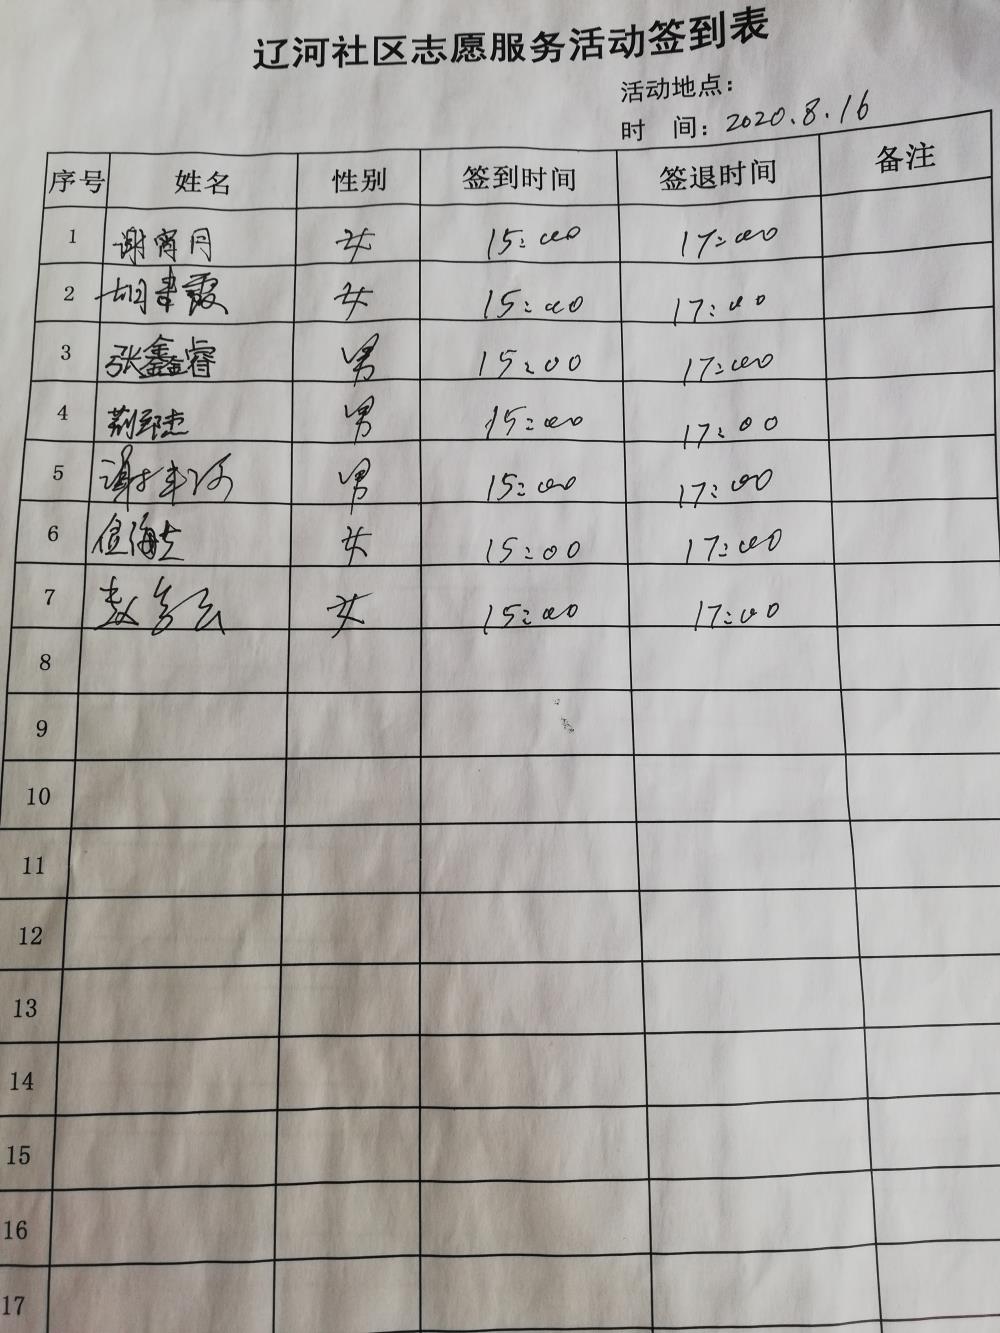 辽河社区志愿服务活动签到表
活动地点：
时 间：2020.8.16
序号 姓名 性别 签到时间 签退时间 备注
1 谢宵月 女 15:00 17:00
2 胡聿霞 女 15:00 17:00
3 张鑫睿 男 15:00 17:00
4 男 15:00 17:00
5 谢 男 15:00 17:00
6 女 15:00 17:00
7 赵 女 15:00 17:00
8
9
10
11
12
13
14
15
16
17